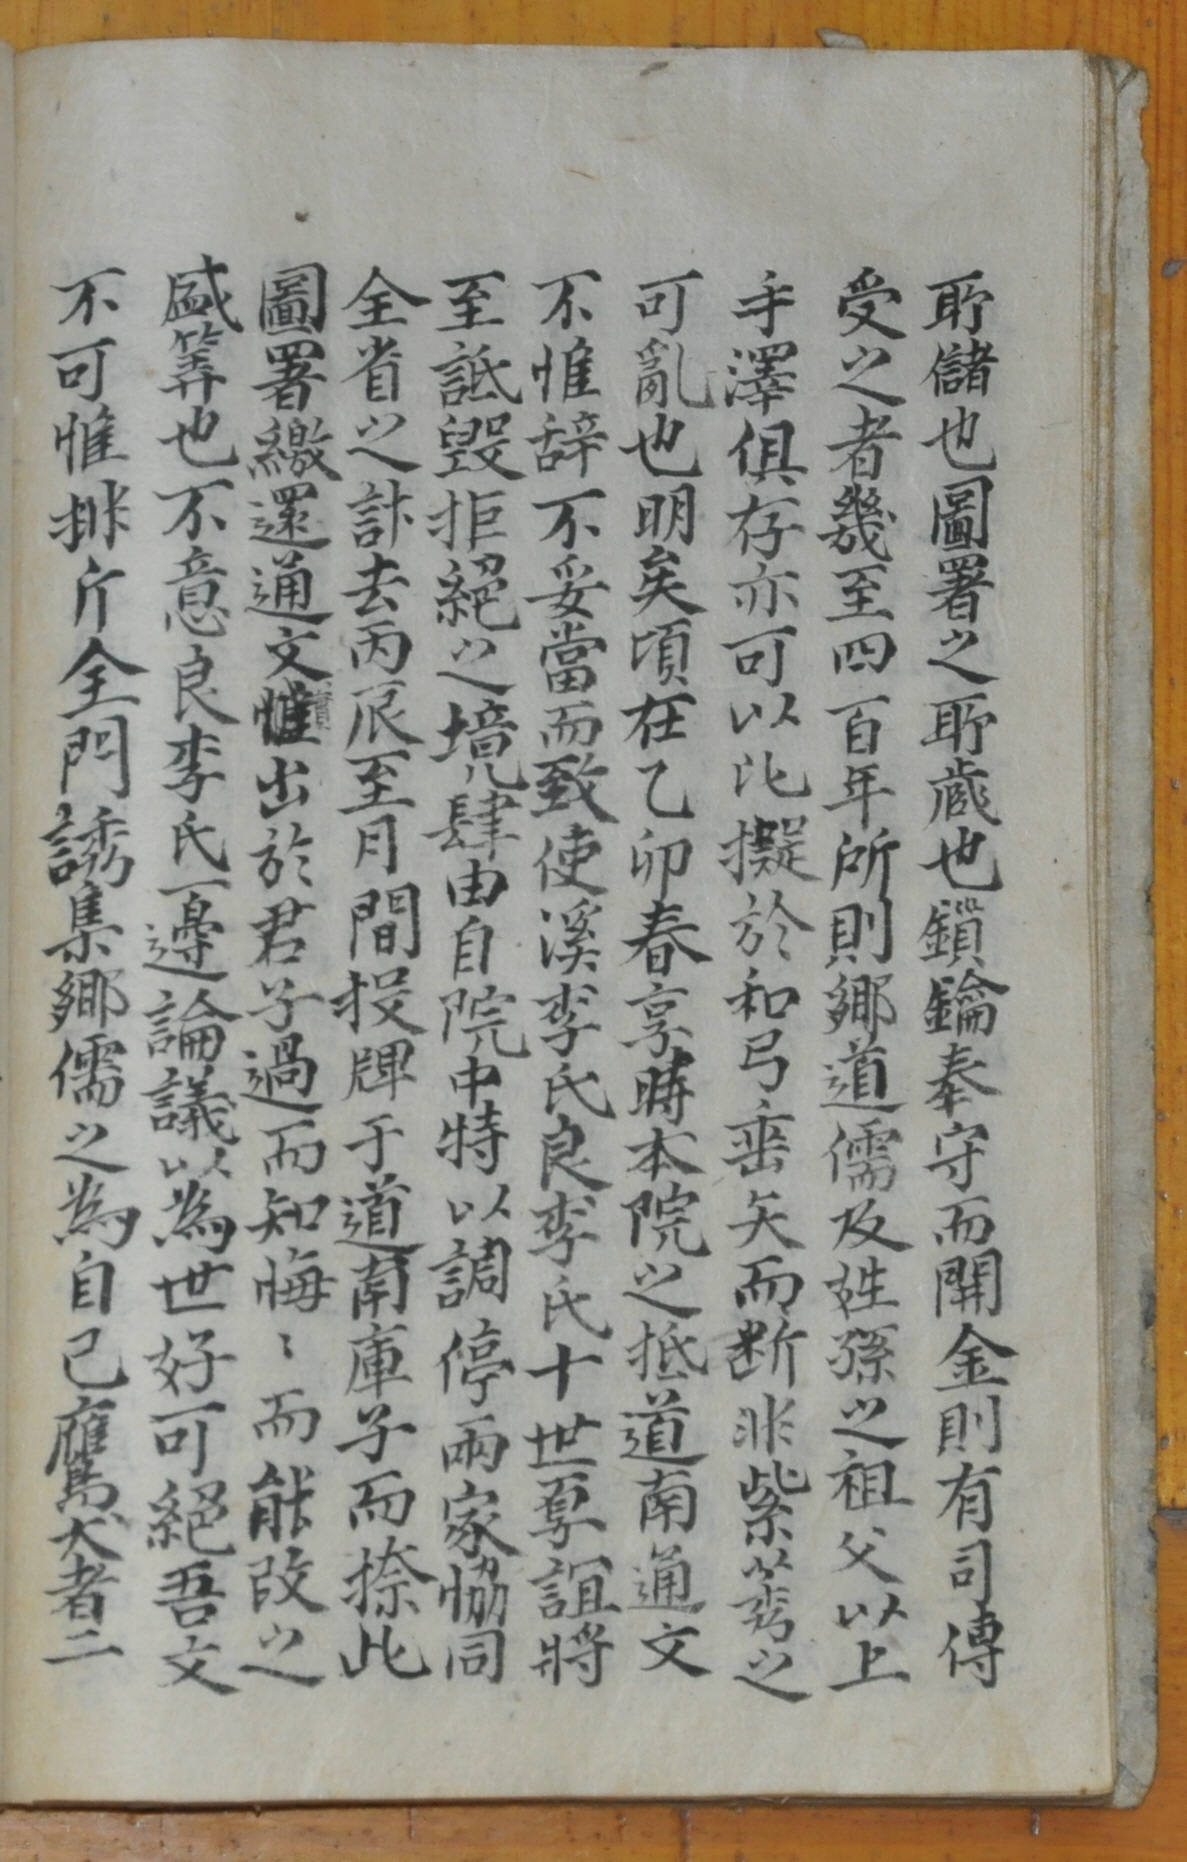 所儲也圖署之所藏也鎖鑰奉守而開金則有司傳
受之者幾至四百年所則鄉道儒及姓孫之祖父以上
手澤俱存亦可以比擬於和弓垂矢而断非紫莠之
可亂也明矣頃在乙卯春享時本院之抵道南通文
不惟辞不妥當而致使溪李氏良李氏十世孚誼將
至詆毀拒絕之境肆由自院中特以調停兩家恊同
全省之計去丙辰至月間投牌于道南庫子而捺此
圖署繳還通文惟實出於君子過而知悔〻而能改之
盛筭也不意良李氏一邊論議以為世好可絕吾文
不可惟排斥全門誘集鄉儒之為自己鷹犬者二